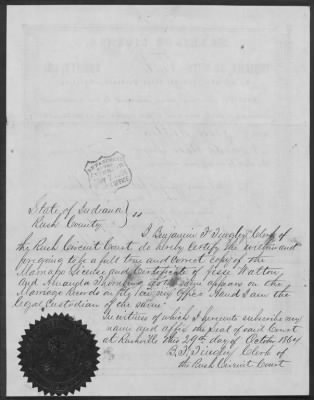 State of Indiana } ss
Rush County
I Benjamin F Tingley Clerk of
the Rush Circuit Court do hereby certify the within and
foregoing to be a full true and correct copy of the
Marriage License and Certificate of Jesse Walton
and Amanda as the same appears on the
Marriage Records on file in my office and I am the
legal Custodian of the same.
In witness of which I hereunto subscribe my
name and affix the seal of said Court
at Rushville this 29th day of October 1864
B. F. Tingley Clerk of
the Rush Circuit Court